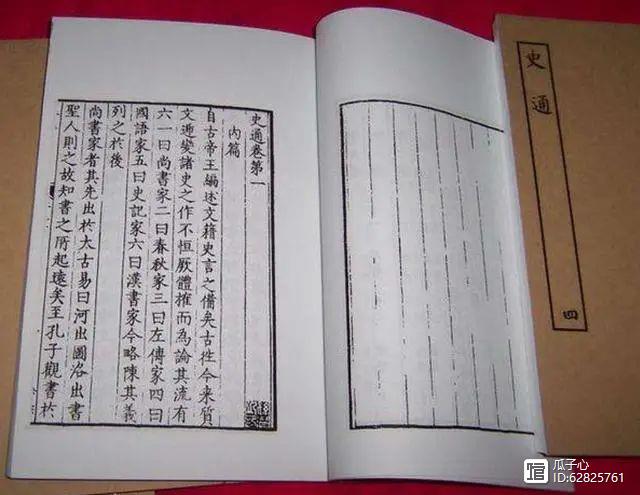 史通卷第一
内篇
自古帝王編述文籍史言之備矣古徃今來質
文遞變諸史之作不恒厥體搉而為論其流有
六一曰尚書家二曰春秋家三曰左傳家四曰
國語家五曰史記家六曰漢書家今略陳其義
列之於後
尚書家者其先出於太古易曰河出圖洛出書
聖人則之故知書之所起遠矣至孔子觀書於
史通
四
瓜子心
ID:62825761